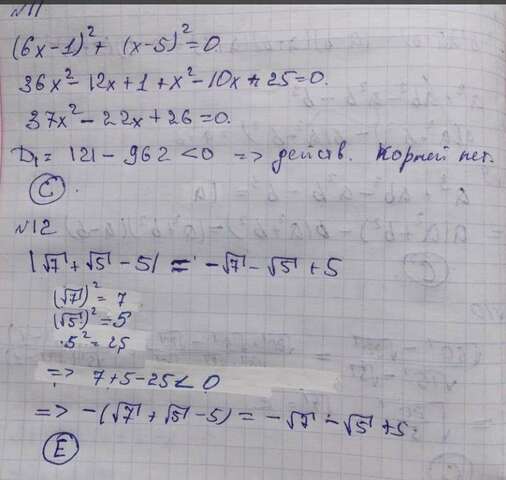 №11
(6x-1)²+ (x-5)²=0.
36x²-12x+1+x²-10x+25=0.
37x²-22x+26=0.
D₁= 121-962 <0 => действ. корней нет.
C.
№12
|√7+√5-5| = -√7-√5+5
(√7)²=7
(√5)²=5
.5²=25
=> 7+5-25<0
=> -(√7+√5-5) = -√7-√5+5.
E